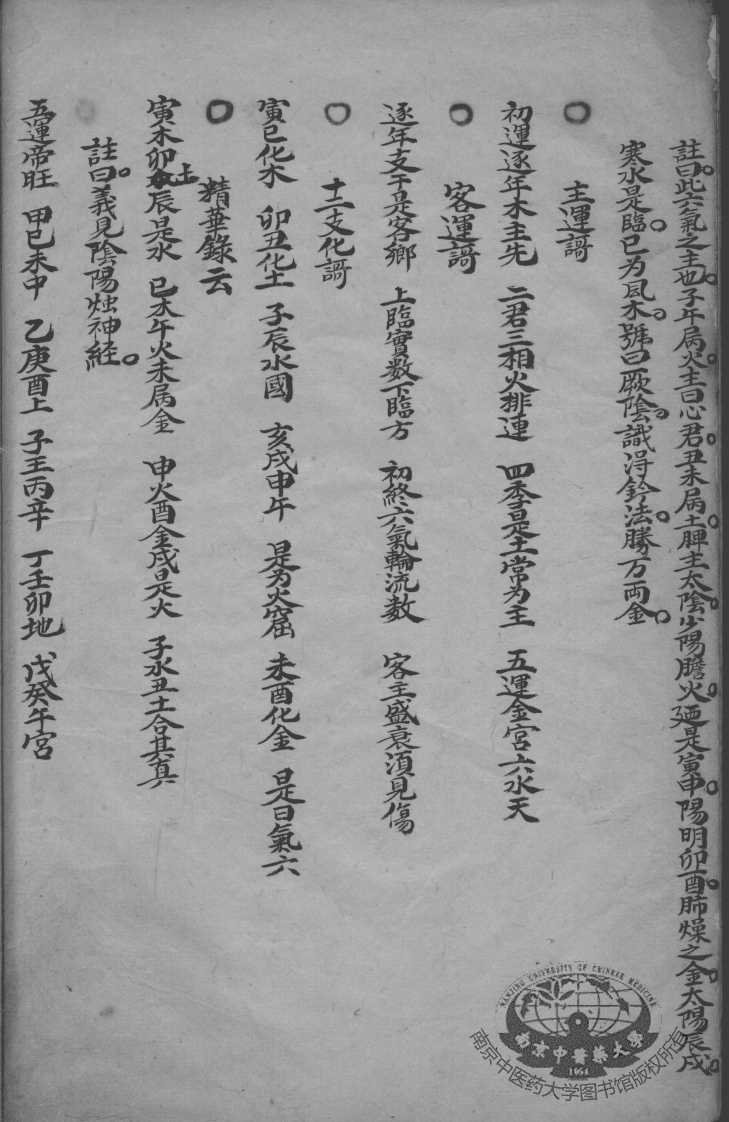 註曰此六氣之主也子午属火主曰心君丑未属土脾主太陰少陽膽火廼是寅申陽明卯酉肺燥之金太陽辰戌
寒水是臨巳为風木號曰厥陰識淂鈐法勝万両金
主運謌
初運逐年木主先 二君三相火排連 四季是土常为主 五運金宮六水天
客運謌
逐年支干是客鄉 上臨實數下臨方 初終六氣輪流数 客主盛衰湏見傷
十二支化謌
寅巳化木 卯丑化土 子辰水國 亥戌申午 是为火窟 未酉化金 是曰氣六
精華錄云
寅木卯土辰是水 巳木午火未属金 申火酉金戌是火 子水丑土合其真
註曰義見陰陽烛神經
五運帝旺 甲巳未中 乙庚酉上 子王丙辛 丁壬卯地 戊癸午宮
NANJING UNIVERSITY OF CHINESE MEDICINE
南京中醫藥大學
1954
南京中医药大学图书馆版权所有